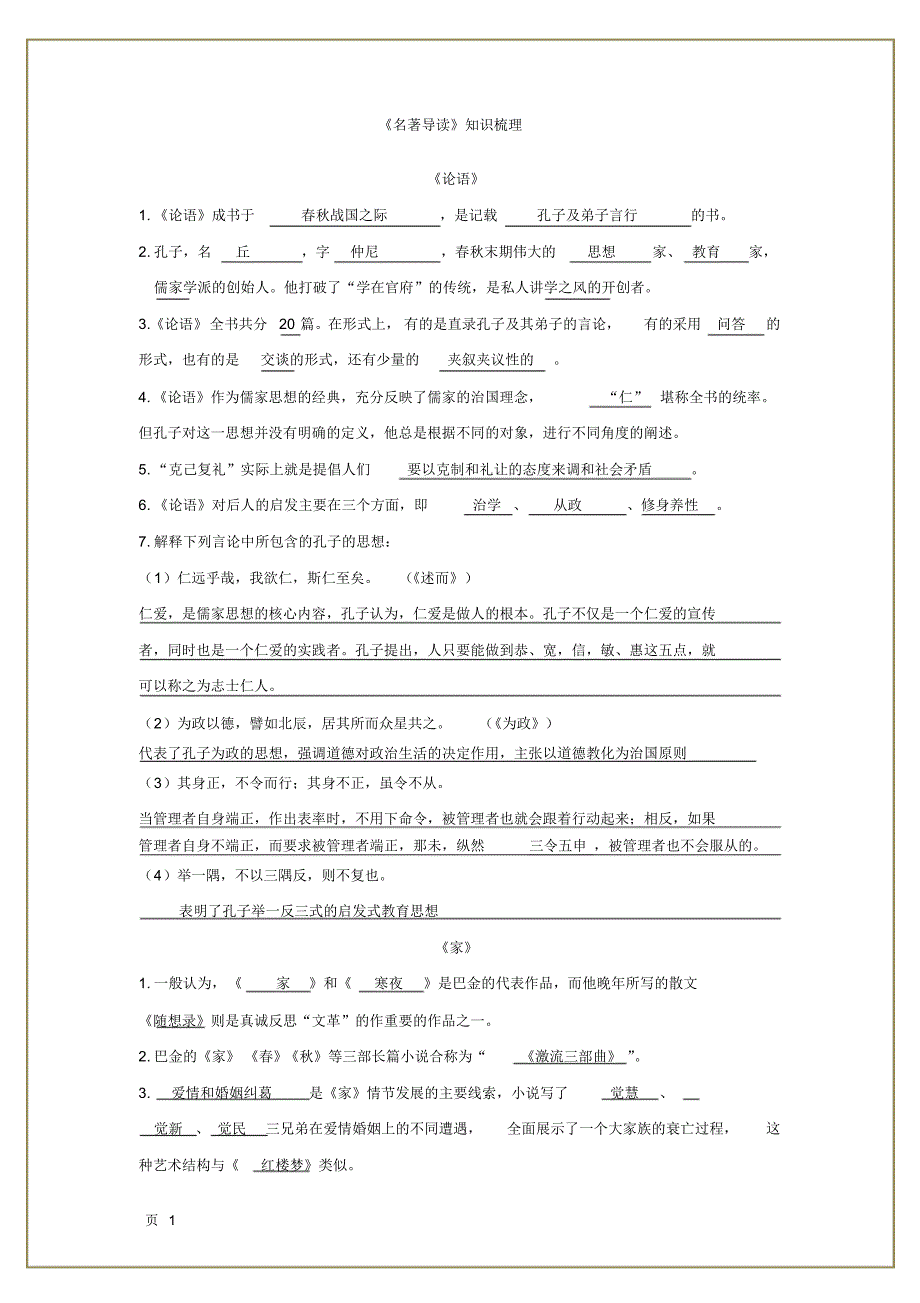 《名著导读》知识梳理
《论语》
1. 《论语》成书于 春秋战国之际 ，是记载 孔子及弟子言行 的书。
2. 孔子，名 丘 ，字 仲尼 ，春秋末期伟大的 思想 家、 教育 家，
儒家学派的创始人。他打破了“学在官府”的传统，是私人讲学之风的开创者。
3.《论语》 全书共分 20 篇。在形式上， 有的是直录孔子及其弟子的言论， 有的采用 问答 的
形式，也有的是 交谈的形式，还有少量的 夹叙夹议性的 。
4. 《论语》作为儒家思想的经典，充分反映了儒家的治国理念， “仁” 堪称全书的统率。
但孔子对这一思想并没有明确的定义，他总是根据不同的对象，进行不同角度的阐述。
5. “克己复礼”实际上就是提倡人们 要以克制和礼让的态度来调和社会矛盾 。
6. 《论语》对后人的启发主要在三个方面，即 治学 、 从政 、修身养性 。
7. 解释下列言论中所包含的孔子的思想：
（1）仁远乎哉，我欲仁，斯仁至矣。 （《述而》）
仁爱，是儒家思想的核心内容，孔子认为，仁爱是做人的根本。孔子不仅是一个仁爱的宣传
者，同时也是一个仁爱的实践者。孔子提出，人只要能做到恭、宽，信，敏、惠这五点，就
可以称之为志士仁人。
（2）为政以德，譬如北辰，居其所而众星共之。 （《为政》）
代表了孔子为政的思想，强调道德对政治生活的决定作用，主张以道德教化为治国原则
（3）其身正，不令而行；其身不正，虽令不从。
当管理者自身端正，作出表率时，不用下命令，被管理者也就会跟着行动起来；相反，如果
管理者自身不端正，而要求被管理者端正，那末，纵然 三令五申 ，被管理者也不会服从的。
（4）举一隅，不以三隅反，则不复也。
表明了孔子举一反三式的启发式教育思想
《家》
1. 一般认为，《 家 》和《 寒夜 》是巴金的代表作品，而他晚年所写的散文
《随想录》则是真诚反思“文革”的作重要的作品之一。
2. 巴金的《家》 《春》《秋》等三部长篇小说合称为“ 《激流三部曲》 ”。
3. 爱情和婚姻纠葛 是《家》情节发展的主要线索，小说写了 觉慧 、
觉新 、 觉民 三兄弟在爱情婚姻上的不同遭遇， 全面展示了一个大家族的衰亡过程， 这
种艺术结构与《 红楼梦》类似。
页 1